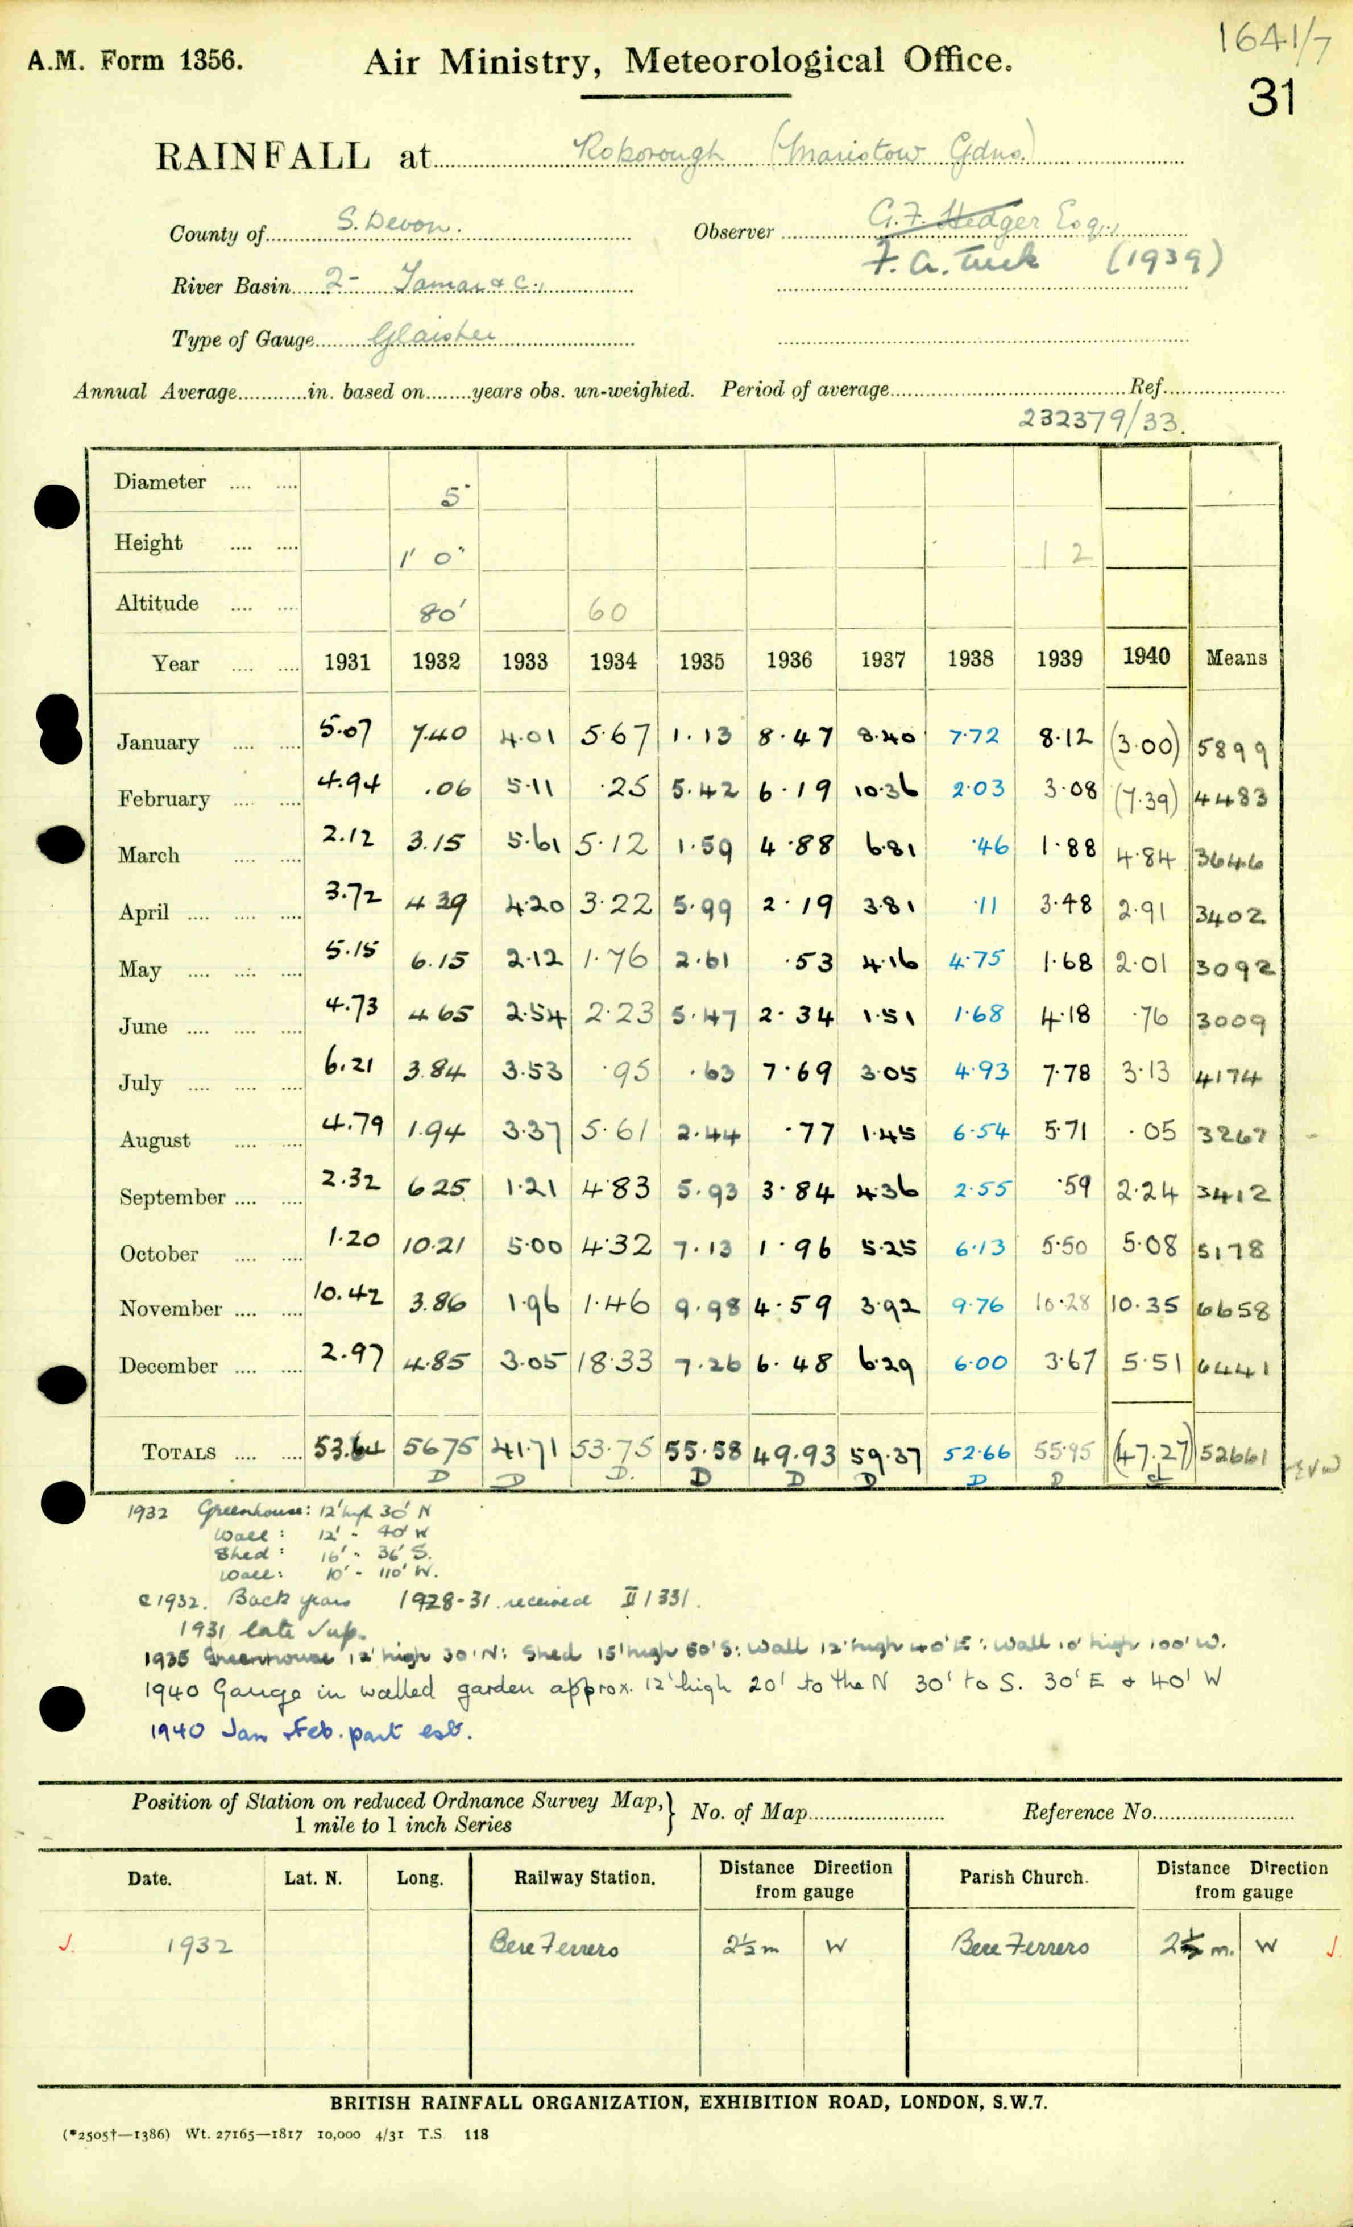 1641/7
A.M. Form 1356. Air Ministry, Meteorological Office.
31
RAINFALL at Roborough (Maristow Gdns.)
County of S. Devon. Observer G.F. Hedger Esq.,
F. A. Tuck (1939)
River Basin 2- Tamar & c.,
Type of Gauge Glaisher
Annual Average............in. based on........years obs. un-weighted. Period of average........................................Ref.....................
232379/33.
Diameter .... .... 5"
Height .... .... 1' 0" 1 2
Altitude .... .... 80' 60
Year .... .... 1931 1932 1933 1934 1935 1936 1937 1938 1939 1940 Means
January .... .... 5.07 7.40 4.01 5.67 1.13 8.47 8.40 7.72 8.12 (3.00) 5899
February .... .... 4.94 .06 5.11 .25 5.42 6.19 10.36 2.03 3.08 (7.39) 4483
March .... .... 2.12 3.15 5.61 5.12 1.59 4.88 6.81 .46 1.88 4.84 3646
April .... .... .... 3.72 4 39 4.20 3.22 5.99 2.19 3.81 .11 3.48 2.91 3402
May .... .... .... 5.15 6.15 2.12 1.76 2.61 .53 4.16 4.75 1.68 2.01 3092
June .... .... .... 4.73 4 65 2.54 2.23 5.47 2.34 1.51 1.68 4.18 .76 3009
July .... .... .... 6.21 3.84 3.53 .95 .63 7.69 3.05 4.93 7.78 3.13 4174
August .... .... 4.79 1.94 3.37 5.61 2.44 .77 1.45 6.54 5.71 .05 3267
September .... .... 2.32 6 25 1.21 4.83 5.93 3.84 4.36 2.55 .59 2.24 3412
October .... .... 1.20 10.21 5.00 4.32 7.13 1.96 5.25 6.13 5.50 5.08 5178
November .... .... 10.42 3.86 1.96 1.46 9.98 4.59 3.92 9.76 10.28 10.35 6658
December .... .... 2.97 4.85 3.05 18.33 7.26 6.48 6.29 6.00 3.67 5.51 6441
TOTALS .... .... 53.64 56 75 41.71 53.75 55.58 49.93 59.37 52.66 55.95 (47.27) 52661
D D D. D D D D D
1932 Greenhouse: 12' high 30' N
Wall: 12' - 40' W
Shed: 16' - 36' S.
Wall: 10' - 110' W.
c 1932. Back years 1928-31 received II/331.
1931 late sup.
1935 Greenhouse 12' high 30' N: Shed 15' high 50' S: Wall 12' high 40' E: Wall 10' high 100' W.
1940 Gauge in walled garden approx. 12' high 20' to the N 30' to S. 30' E & 40' W
1940 Jan Feb. part est.
Position of Station on reduced Ordnance Survey Map, } No. of Map........................ Reference No.........................
1 mile to 1 inch Series
Date. Lat. N. Long. Railway Station. Distance Direction from gauge Parish Church. Distance Direction from gauge
1932 Bere Ferrers 2½ m W Bere Ferrers 2½ m. W
BRITISH RAINFALL ORGANIZATION, EXHIBITION ROAD, LONDON, S.W.7.
(*2505†—1386) Wt. 27165—1817 10,000 4/31 T.S. 118